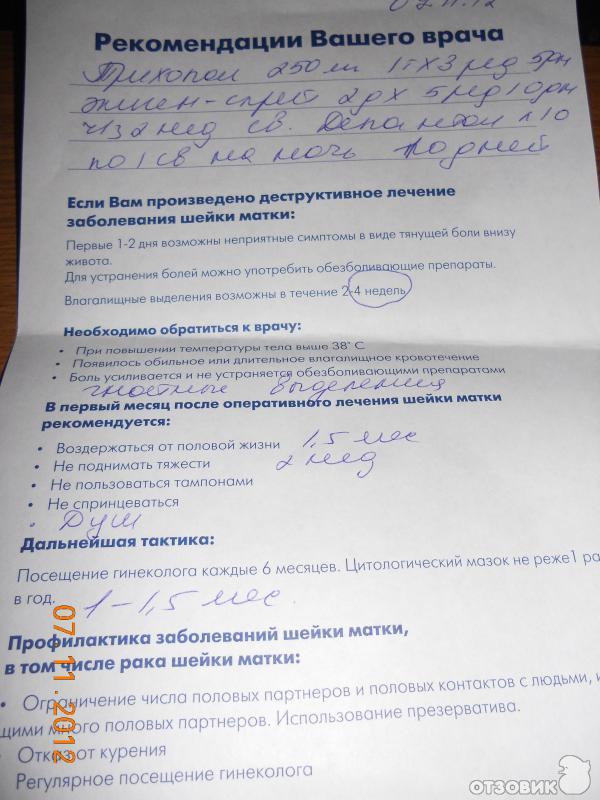 07.11.12
Рекомендации Вашего врача
Трихопол 250 мг 1т х 3 р/д 5дн
эпиген-спрей 2д х 5 р/д 10дн
ч/з 2 нед св. Депантол n10
по 1 св на ночь 10 дней
Если Вам произведено деструктивное лечение
заболевания шейки матки:
Первые 1-2 дня возможны неприятные симптомы в виде тянущей боли внизу
живота.
Для устранения болей можно употребить обезболивающие препараты.
Влагалищные выделения возможны в течение 2-4 недель
Необходимо обратиться к врачу:
• При повышении температуры тела выше 38° С
• Появилось обильное или длительное влагалищное кровотечение
• Боль усиливается и не устраняется обезболивающими препаратами
гностные выделения
В первый месяц после оперативного лечения шейки матки
рекомендуется:
• Воздержаться от половой жизни 1,5 мес
• Не поднимать тяжести 2 нед
• Не пользоваться тампонами
• Не спринцеваться
• Душ
Дальнейшая тактика:
Посещение гинеколога каждые 6 месяцев. Цитологический мазок не реже1 ра
в год. 1-1,5 мес.
Профилактика заболеваний шейки матки,
в том числе рака шейки матки:
• Ограничение числа половых партнеров и половых контактов с людьми, и
щими много половых партнеров. Использование презерватива.
• Отказ от курения
Регулярное посещение гинеколога
07.11.2012
ОТЗОВИК